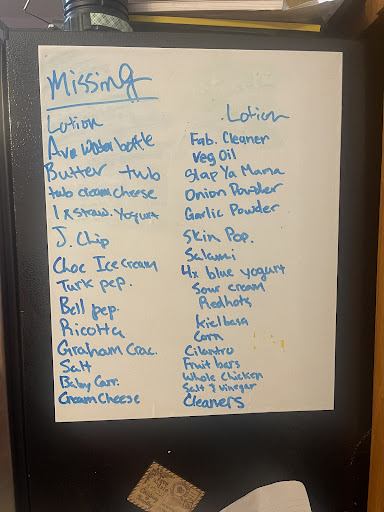 Missing
Lotion
Ava Water bottle
Butter tub
tub cream cheese
1 x straw. Yogurt
J. Chip
Choc Ice cream
Turk pep.
Bell pep.
Ricotta
Graham Crac.
Salt
Baby Carr.
Cream Cheese
Lotion
Fab. Cleaner
Veg Oil
Slap Ya Mama
Onion Powder
Garlic Powder
Skin Pop.
Salami
4x blue yogurt
Sour cream
Redhots
Kielbasa
Corn
Cilantro
Fruit bars
Whole Chicken
Salt & Vinegar
Cleaners